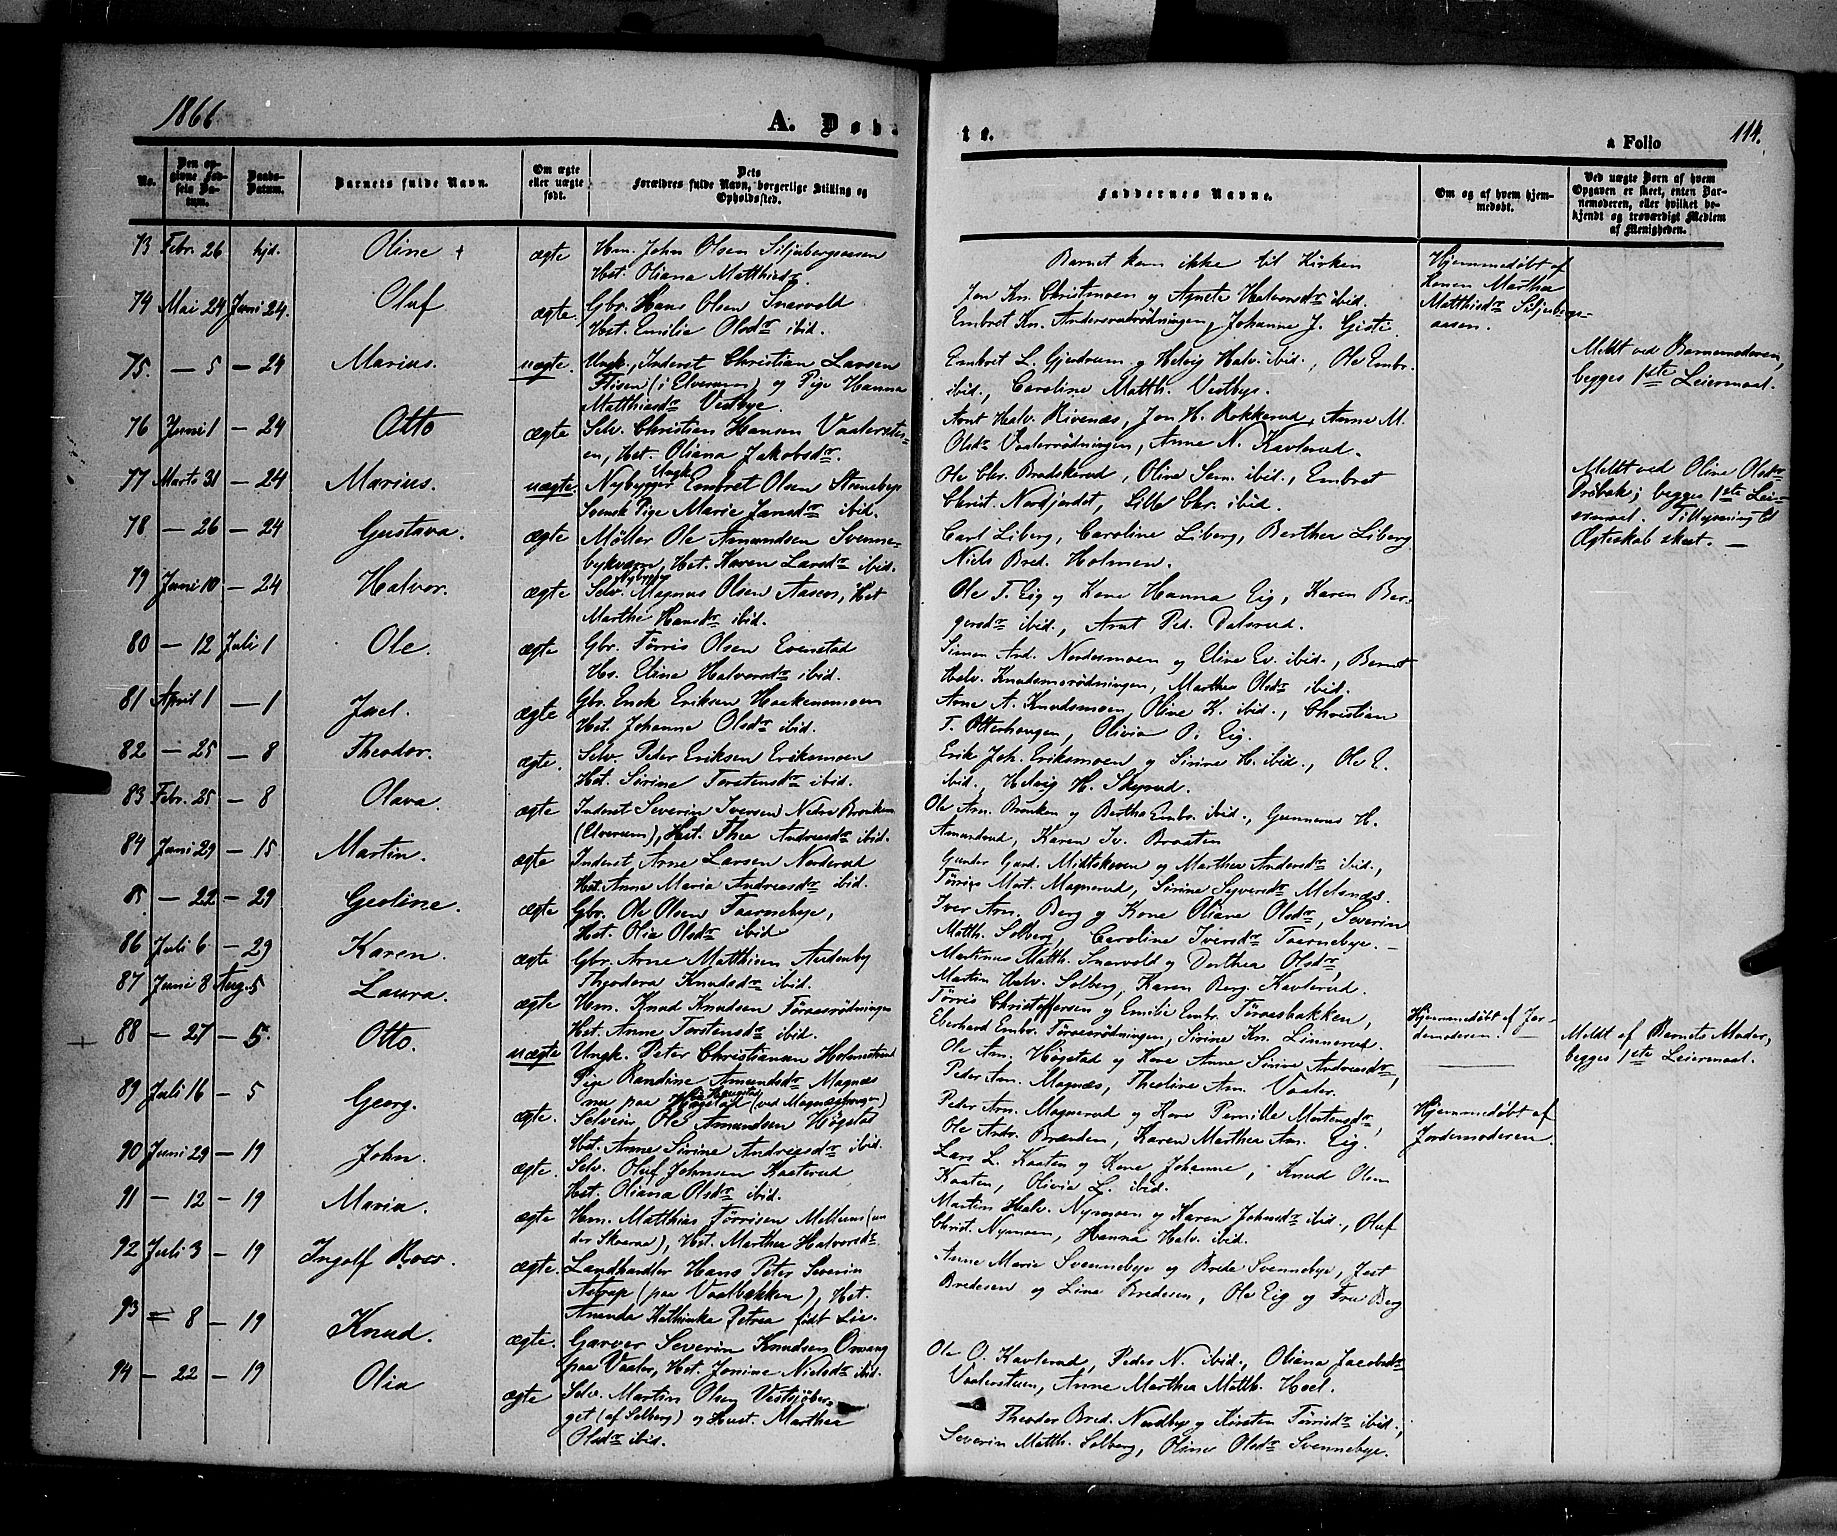 1866
A. Døb-
te.
a Folio
114.
No.
Den op-
givne Fød-
sels Da-
tum.
Daabs-
Datum.
Barnets fulde Navn.
Om ægte
eller uægte
født.
Dets
Forældres fulde Navn, borgerlige Stilling og
Opholdssted.
Faddernes Navne.
Om og af hvem hjem-
medøbt.
Ved uægte Børn af hvem
Opgaven er skeet, enten Bar-
nemoderen, eller hvilket be-
kjendt og troværdigt Medlem
af Menigheden.
73 Febr. 26 hjd. Oline + ægte Hm. John Olsen Siljubergsaasen
Hst. Oliana Matthisdr
Barnet kom ikke til Kirken
Hjemmedøbt af
Konen Marthea
Matthisdr Siljubergs-
aasen.
74 Mai 24 Juni 24. Oluf ægte. Gbr. Hans Olsen Snarvold
Hst. Emilie Olsdr ibid.
Jon Kn. Christmoen og Agnete Halvorsdr ibid.
Embret Kn. Andersrudrødningen, Johanne J. Gisti
75. — 5 — 24 Marius. uægte. Ungk., Inderst Christian Larsen
Stisen (i Elverum) og Pige Hanna
Matthiasdr Vestbye.
Embret L. Gjerdrum og Helvig Halv. ibid., Ole Embr.
ibid., Caroline Matth. Vestbye.
Meldt ved Barnemoderen,
begges 1ste Leiermaal.
76 Juni 1 — 24 Otto ægte Selv. Christian Hansen Vaalerste-
en, Hst. Oliana Jakobsdr.
Arnt Halv. Rivenæs, Jon H. Rokkerud, Anne M.
Olsdr Vaalerrødningen, Anne N. Kavlerud.
77 Marts 31 — 24 Marius. uægte. Nybygger Ungk. Embret Olsen Stenebye
Svensk Pige Marie Jansdr ibid.
Ole Chr. Bradskerud, Oline Sem. ibid., Embret
Christ. Nordjordet, Lille Chr. ibid.
Meldt ved Oline Olsdr
Prøbak; begges 1ste Lei-
ermaal. Tillysning til
Ægteskab skeet. —
78 — 26 — 24 Gustava. ægte Møller Ole Amundsen Svenne-
bykværn, Hst. Karen Larsdr ibid.
Carl Liberg, Caroline Liberg, Berthea Liberg
Niels Bred. Holmen.
79 Juni 10 — 24 Halvor. ægte Selv. Magnus Olsen Aasen, Hst
Marthe Hansdr ibid.
Ole T. Eig og Kone Hanna Eig, Karen Ber-
gersdr ibid., Arnt Ped. Dalsrud.
80 — 12 Juli 1 Ole. ægte Gbr. Tørris Olsen Evenstad
Hs. Eline Halvorsdr ibid.
Simen And. Nordsmoen og Eline Ev. ibid., Bernt
Halv. Knudsmorødningen, Marthea Olsdr ibid.
81 April 1 — 1 Joel. ægte Gbr. Enok Eriksen Haakenamoen
Hst. Johanna Olsdr ibid.
Arne A. Knudsmoen, Oline K. ibid., Christian
T. Otterhaugen, Olivia P. Eig.
82 — 25 — 8 Theodor. ægte. Selv. Peder Eriksen Eriksmoen
Hst. Sirine Torstensdr ibid.
Erik Joh. Eriksmoen og Sirine H. ibid., Ole E.
ibid. Helvig H. Skyrud.
83 Febr. 25 — 8 Olava. ægte Inderst Severin Iversen Nedre Bronken
(Elverum), Hst. Thea Andreasdr ibid.
Ole Am. Bronken og Berthe Embr. ibid., Gunnerus H.
Amundrud, Karen Iv. Braaten
84 Juni 29 — 15 Martin. ægte Inderst Arne Larsen Norderud
Hst. Anne Maria Andreasdr ibid.
Gunder Gard. Midtskoven og Marthea Andersdr ibid.,
Tørris Mort. Magnerud, Sirine Syversdr Melsnæs.
85 — 22 — 29 Geoline. ægte Gbr. Ole Olsen Taernebye,
Hst. Olia Olsdr ibid
Iver Am. Berg og Kone Oliane Olsdr, Severin
Matth. Solberg, Caroline Iversdr Taernebye. —
86 Juli 6 — 29 Karen. ægte Gbr. Arne Matthisen Aurdenby
Thyodora Knudsdr ibid.
Martinus Matth. Snarvold og Dorthea Olsdr,
Martin Halv. Solberg, Karen Berg. Kavlerud.
87 Juni 8 Aug. 5 Laura. ægte Hm. Knud Knudsen Føraasrødningen
Hst. Anne Torstensdr ibid.
Tørris Christoffersen og Emilie Embr. Føraasbakken,
Eberhard Embr. Føraasrødningen, Sirine Kn. Linnerud.
Hjemmedøbt af Jor-
demoderen. —
88 — 27 — 5. Otto. uægte Ungk. Peter Christiansen Holmestrand
Pige Randine Amundsdr Magnæs
nu paa Høgstad (ved Magnæshaugen)
Ole Am. Høgstad og Kone Anne Sirine Andreasdr,
Peder Am. Magnæs, Theoline Am. Vaaler.
Meldt af Barnets Moder,
begges 1ste Leiermaal.
89 Juli 16 — 5 Georg. ægte. Selveier, Ole Amundsen Høgstad
Hst. Anne Sirine Andreasdr ibid.
Peder Am. Magnerud og Kone Pernille Mortensdr,
Ole Andr. Brænden, Karen Marthea Am. Eig.
Hjemmedøbt af
Jordemoderen.
90 Juni 29 — 19 John. ægte Selv. Oluf Johnsen Kaaterud
Hst. Oliana Olsdr ibid.
Lars L. Kaaten og Kone Johanne, Knud Olsen
Kaaten, Olivia L. ibid.
91 — 12 — 19 Maria. ægte Hm. Matthias Tørrisen Mellum (un-
der Skarne), Hst. Marthea Halvorsdr.
Martin Halv. Nymoen og Karen Johnsdr ibid., Oluf
Christ. Nymoen, Hanna Halv. ibid.
92 Juli 3 — 19 Ingolf Roes. ægte. Landhandler Hans Peter Severin
Astrup (paa Vaalbakken), Hst.
Amanda Kathinka Petrea født Lie.
Anne Marie Svennebye og Brede Svennebye, Jest
Bredesen og Lina Bredesen, Ole Eig og Fru Berg
93 = 8 — 19 Knud. ægte. Garver Severin Knudsen Omang
paa Vaaler, Hst. Jonine Nielsdr ibid.
Ole O. Kavlerud, Peder N. ibid., Oliana Jacobsdr
Vaalersteen, Anne Marthea Matth. Hoel.
94 — 22 — 19 Olia ægte Selv. Martin Olsen Vestsjøber-
get (af Solberg) og Hust. Marthea
Olsdr ibid.
Theodor Bred. Nordby og Kirsten Tørrisdr ibid.,
Severin Matth. Solberg, Oline Olsdr Svennebye.